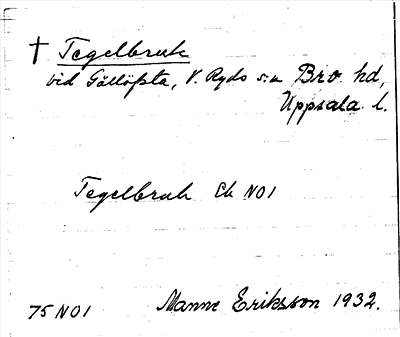 † Tegelbruk
vid Gällöfsta, V. Ryds s:n Bro hd,
Uppsala l.
Tegelbruk Ek NO1
75 NO1 Manne Eriksson 1932.